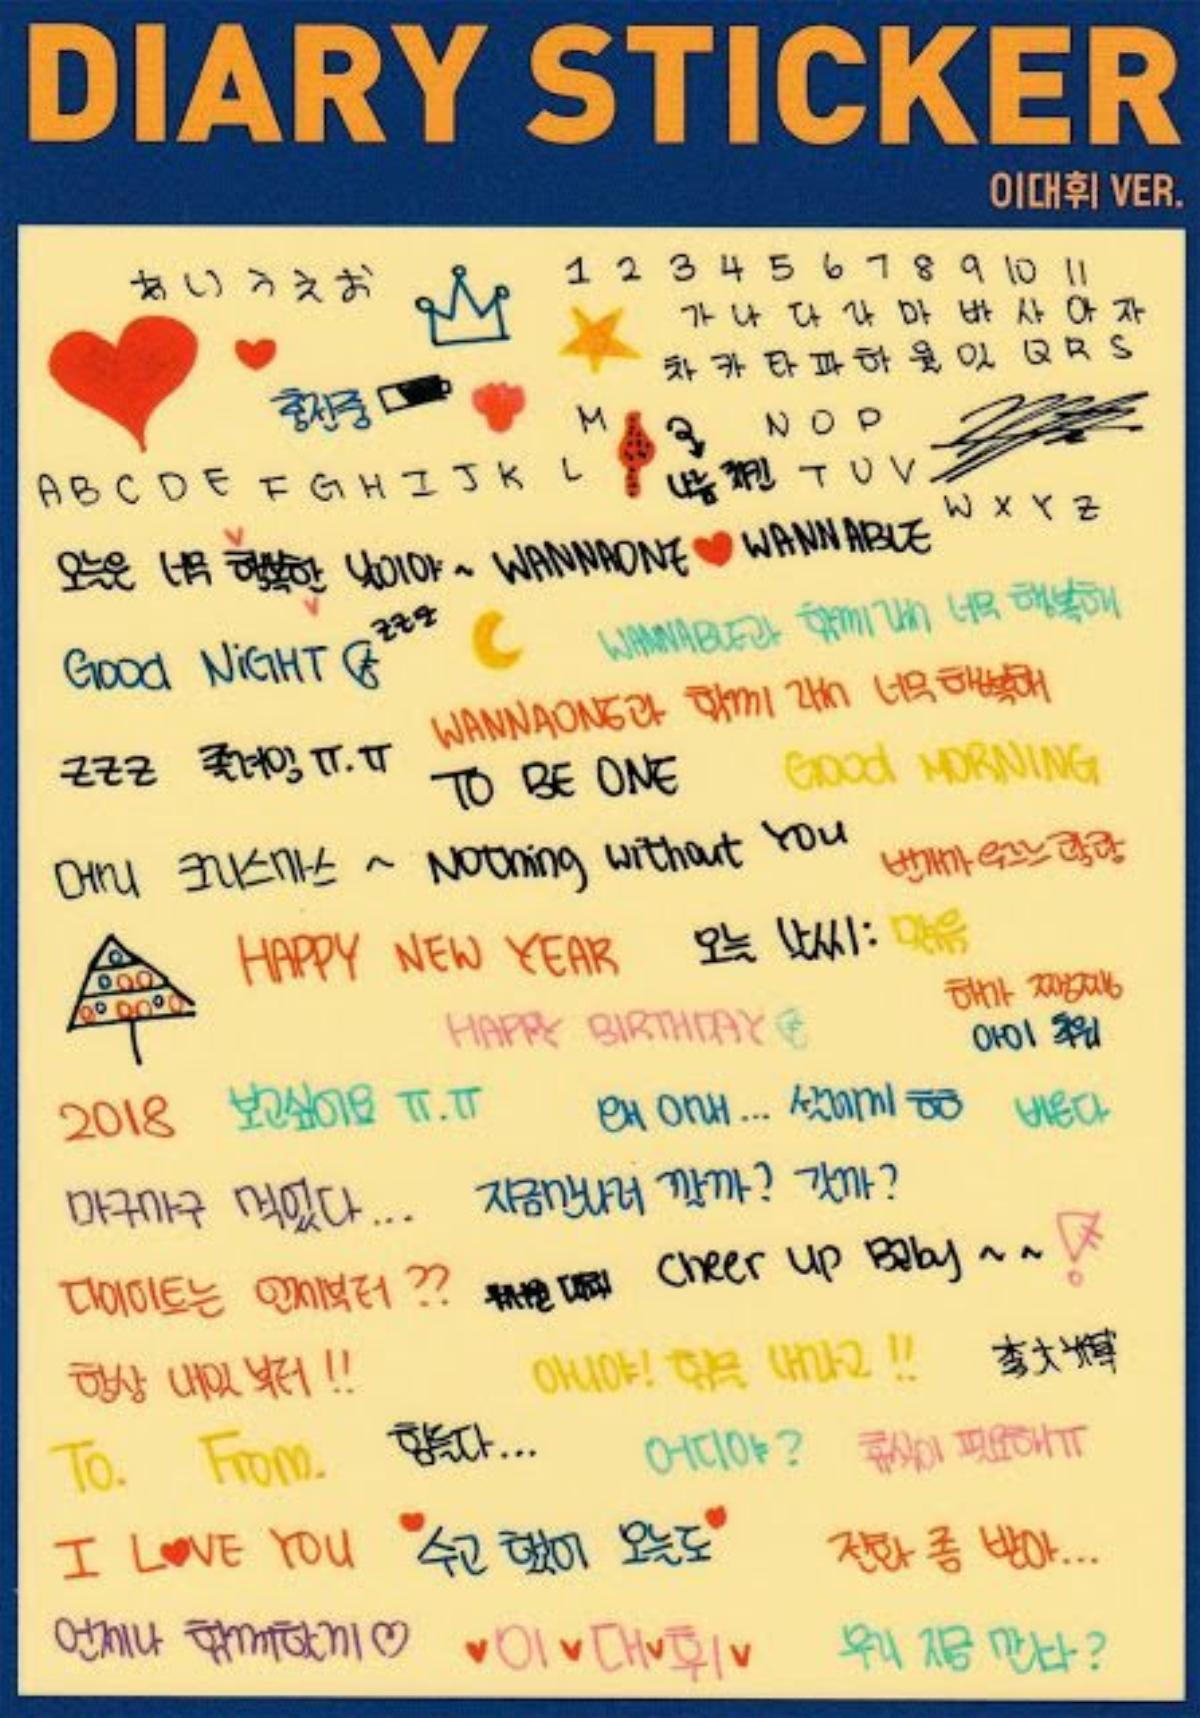 DIARY STICKER
이대휘 VER.
あいうえお
1 2 3 4 5 6 7 8 9 10 11
가 나 다 라 마 바 사 아 자
차 카 타 파 하 윷 있 Q R S
충전중
M
N O P
A B C D E F G H I J K L
나눔 치킨
T U V
W X Y Z
오늘은 너무 행복한 날이야~ WANNAONE WANNABLE
GOOD NiGHT
zzz
WANNABLE과 함께라서 너무 행복해
WANNAONE과 함께라서 너무 행복해
ZZZ 졸려잉 ㅠ.ㅠ
TO BE ONE
GOOD MORNING
메리 크리스마스 ~
Nothing without You
번개가 우르르 쾅쾅
HAPPY NEW YEAR
오늘 날씨: 맑음
해가 쨍쨍
HAPPY BIRTHDAY
아이 추워
2018
보고싶어요 ㅠ.ㅠ
왜 이래...
배고프다
마구마구 먹었다...
지금만나러 갈까? 갓까?
다이어트는 언제부터 ??
대휘
Cheer up Baby ~ ~
항상 내일부터 !!
아니야! 힘을 내라고 !!
李大輝
To. From.
힘들다...
어디야?
휴식이 필요해ㅠ
I LOVE YOU
수고 했어 오늘도
전화 좀 받아...
언제나 함께할게♡
이 대 휘
우리 지금 만나?